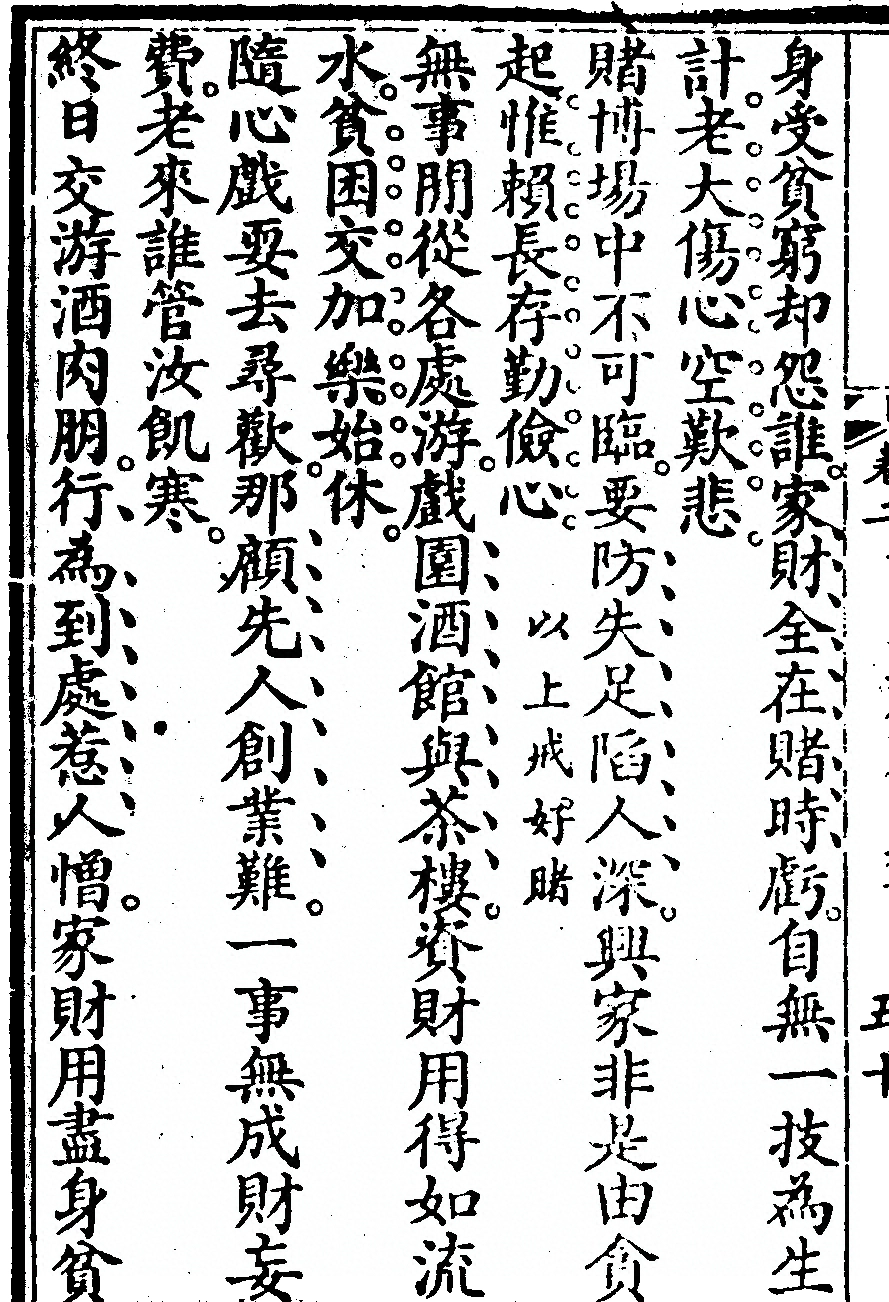 身受貧窮却怨誰家財全在賭時虧自無一技為生
計老大傷心空歎悲
賭博場中不可臨要防失足陷人深興家非是由貪
起惟賴長存勤儉心 以上戒好賭
無事閒從各處游戲園酒館與茶樓資財用得如流
水貧困交加樂始休
隨心戲耍去尋歡那顧先人創業難一事無成財妄
費老來誰管汝飢寒
終日交游酒肉朋行為到處惹人憎家財用盡身貧